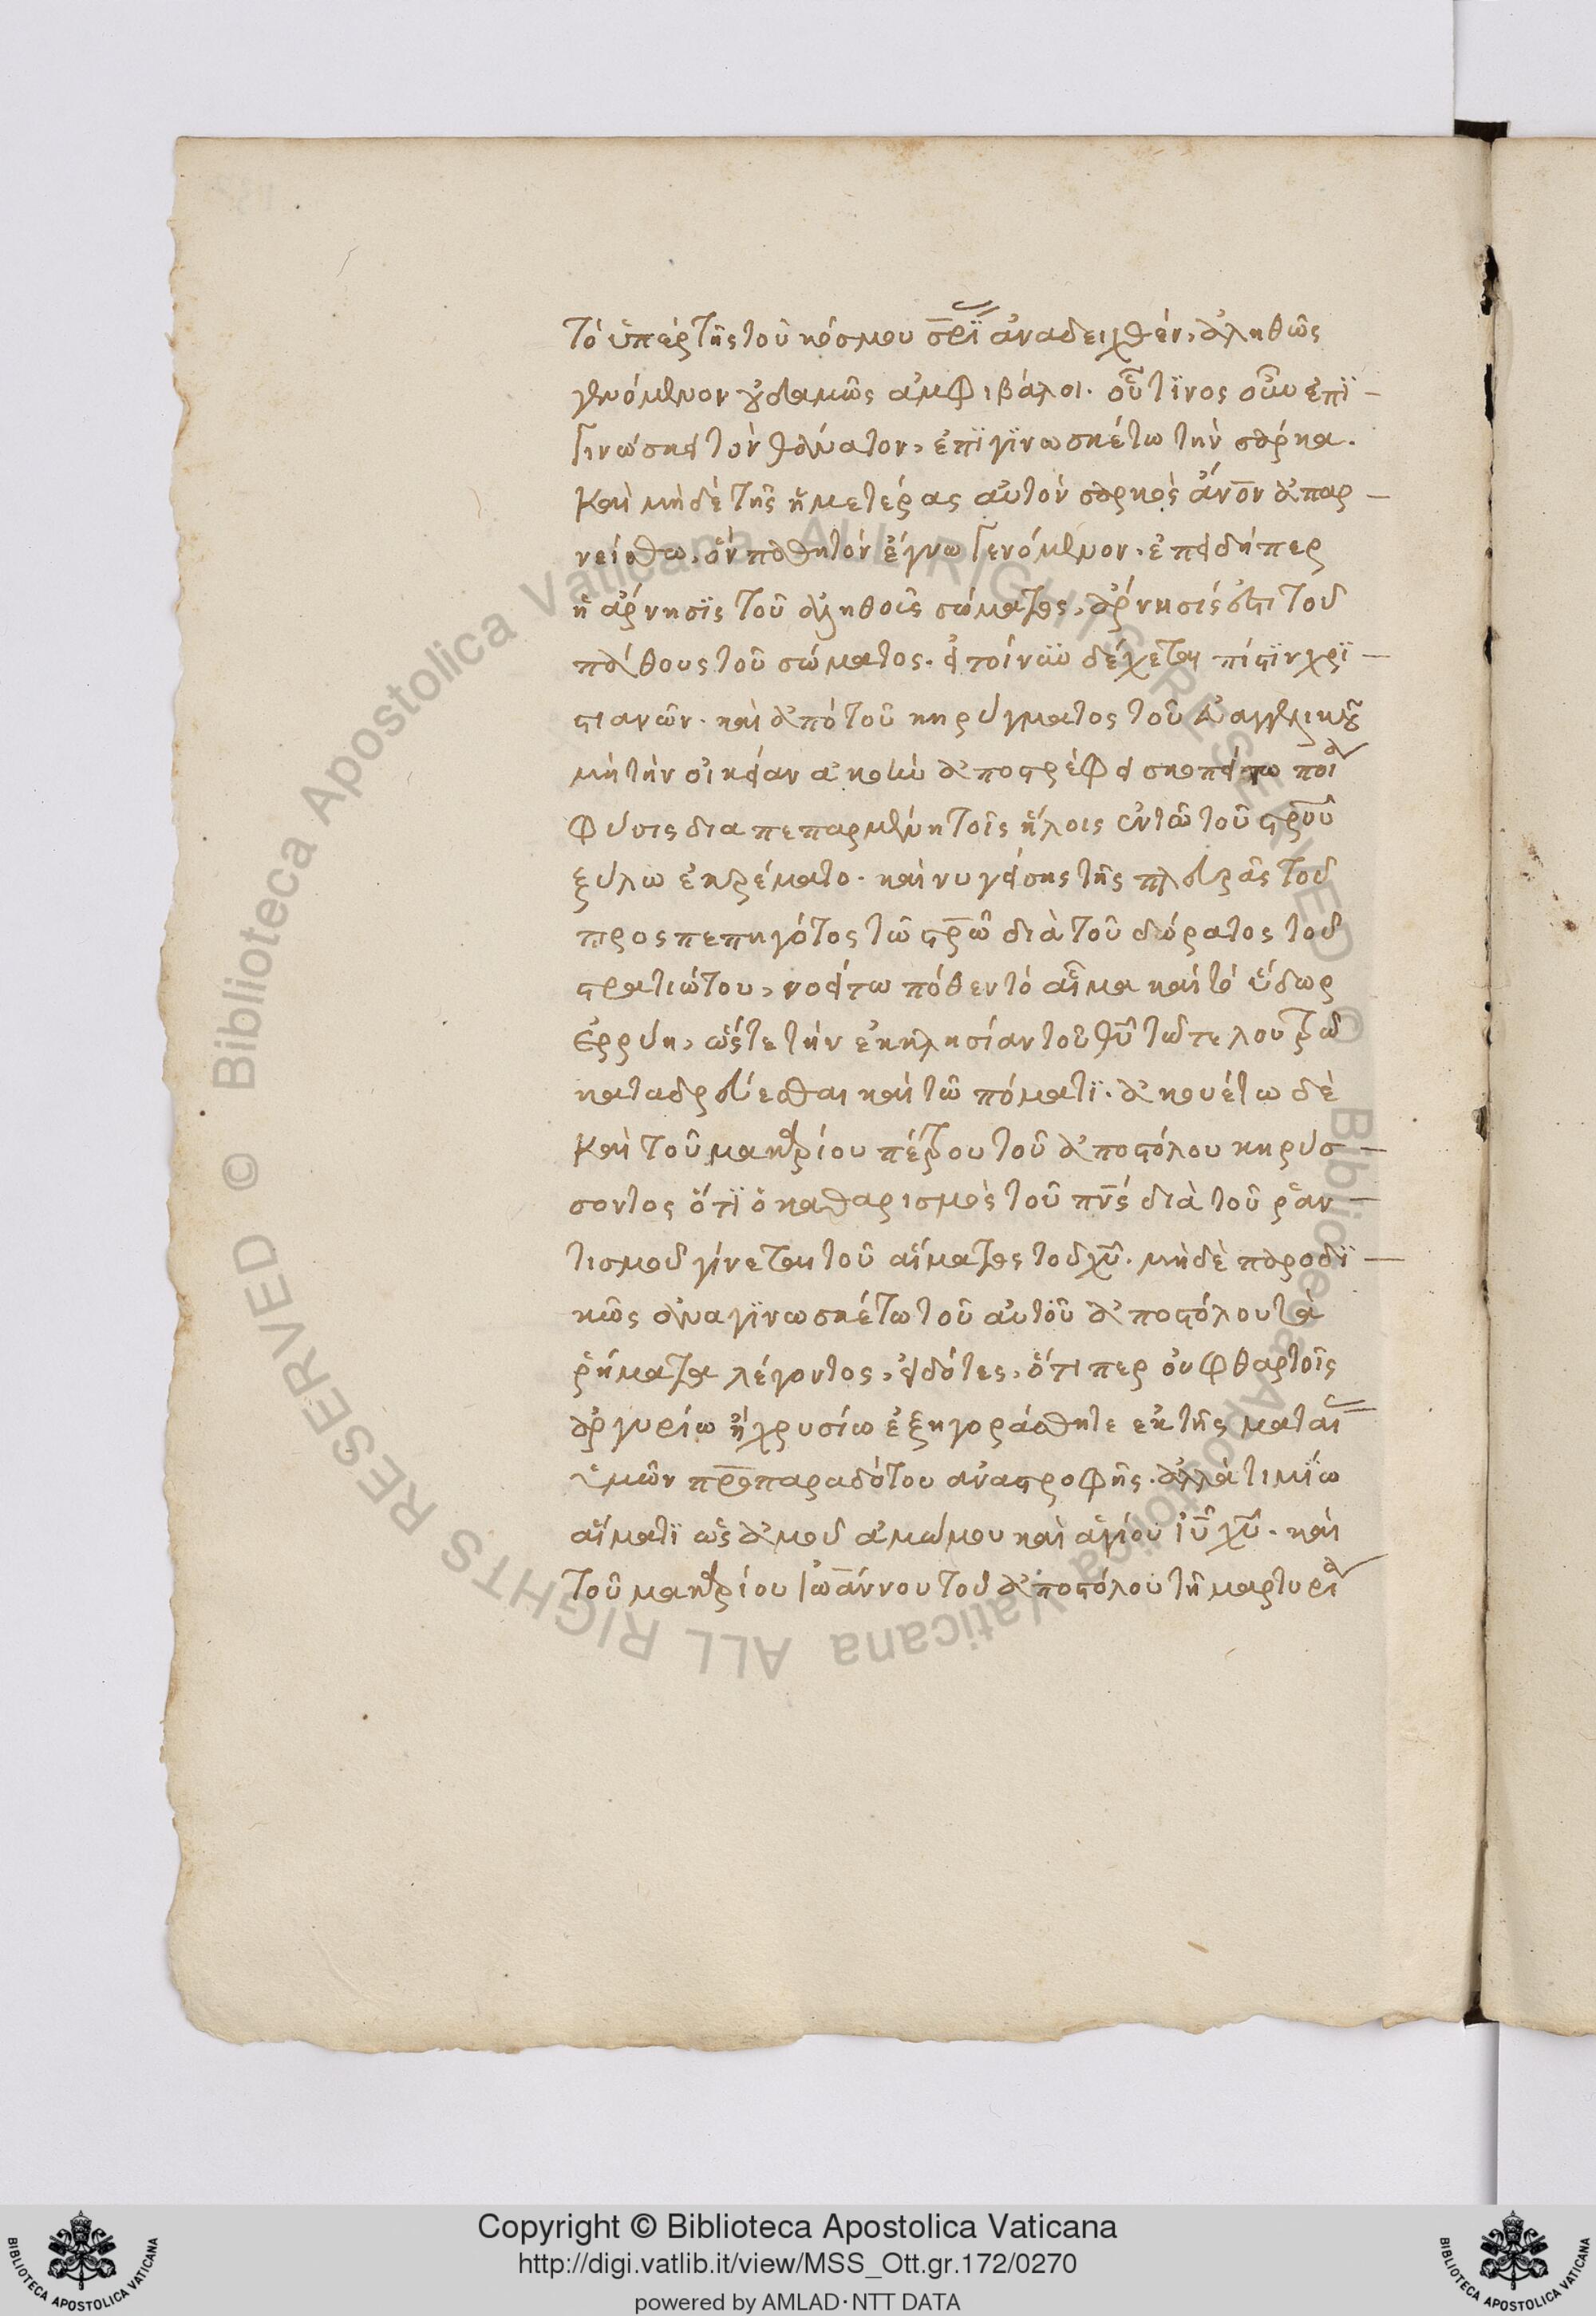 τὸ ὑπὲρ τῆς τοῦ κόσμου σρΐας ἀναδειχθὲν, ἀληθῶς
γενόμενον οὐδαμῶς ἀμφιβάλοι. οὗτϊνος οὖν ἐπϊ-
γινώσκει τὸν θάνατον, ἐπϊγϊνωσκέτω τὴν σάρκα.
καὶ μὴ δὲ τῆς ἡμετέρας αὐτὸν σαρκὸς ἄνον ἀπαρ-
νείσθω, ὃν παθητὸν ἔγνω γενόμενον. ἐπειδήπερ
ἡ ἄρνησϊς τοῦ ἀληθοῦς σώματος, ἄρνησίς ἐστι τοῦ
πάθους τοῦ σώματος. εἰ τοίνυν δέχεται πίστϊν χρϊ-
στιανῶν. καὶ ἀπὸ τοῦ κηρύγματος τοῦ εὐαγγελικοῦ
μὴ τὴν οἰκείαν ἀκοὴν ἀποστρέφει σκοπείτω ποία
φύσις διαπεπαρμένη τοῖς ἥλοις ἐν τῶ τοῦ στροῦ
ξύλω ἐκρέματο. καὶ νυγείσης τῆς πλευρᾶς τοῦ
προσπεπηγότος τῶ στρῶ διὰ τοῦ δώρατος τοῦ
στρατιώτου, νοείτω πόθεν τὸ αἷμα καὶ τὸ ὕδωρ
ἐρρύη, ὥστε τὴν ἐκκλησίαν τοῦ θῦ τῶ τε λουτρῶ
καταδρεύεσθαι καὶ τῶ πόματϊ. ἀκουέτω δὲ
καὶ τοῦ μακαρίου πέτρου τοῦ ἀποστόλου κηρύσ-
σοντος ὅτϊ ὁ καθαρισμὸς τοῦ πνς διὰ τοῦ ῥαν-
τισμοῦ γίνεται τοῦ αἵματος τοῦ χῦ. μὴ δὲ παροδϊ-
κῶς ἀναγϊνωσκέτω τοῦ αὐτοῦ ἀποστόλου τὰ
ῥήματα λέγοντος, εἰδότες, ὅτι περ οὐ φθαρτοῖς
ἀργυρίω ἢ χρυσίω ἐξηγοράσθητε ἐκ τῆς ματαίας
ὑμῶν προπαραδότου ἀναστροφῆς. ἀλλὰ τιμΐω
αἵματϊ ὡς ἀμνοῦ ἀμώμου καὶ ἁγίου ἰῦ χῦ. καὶ
τοῦ μακαρίου ἰωάννου τοῦ ἀποστόλου τῆ μαρτυρία
Copyright © Biblioteca Apostolica Vaticana
http://digi.vatlib.it/view/MSS_Ott.gr.172/0270
powered by AMLAD·NTT DATA
© Biblioteca Apostolica Vaticana ALL RIGHTS RESERVED © Biblioteca Apostolica Vaticana ALL RIGHTS RESERVED
BIBLIOTECA APOSTOLICA VATICANA
BIBLIOTECA APOSTOLICA VATICANA